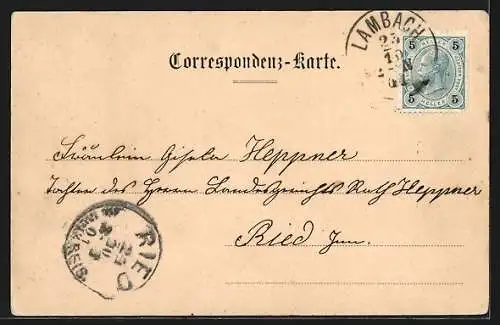 LAMBACH
5 5
HELLER
5 5
Correspondenz-Karte.
Fräulein Gisela Heppner
Tochter des Herrn Landesgerichts Rath Heppner
Ried Inn.
RIED